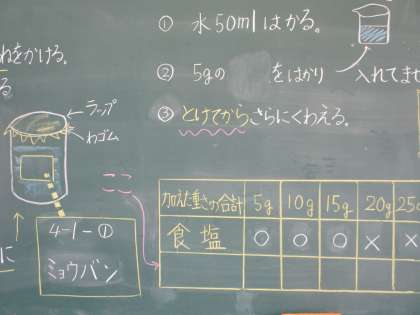 ① 水50mlはかる。
をかける。
② 5gの をはかり 入れてまぜ
る
③ とけてからさらにくわえる。
ラップ
わゴム
ここ
に
4-1-①
ミョウバン
加えた重さの合計 5g 10g 15g 20g 25g
食塩 ○ ○ ○ × ×